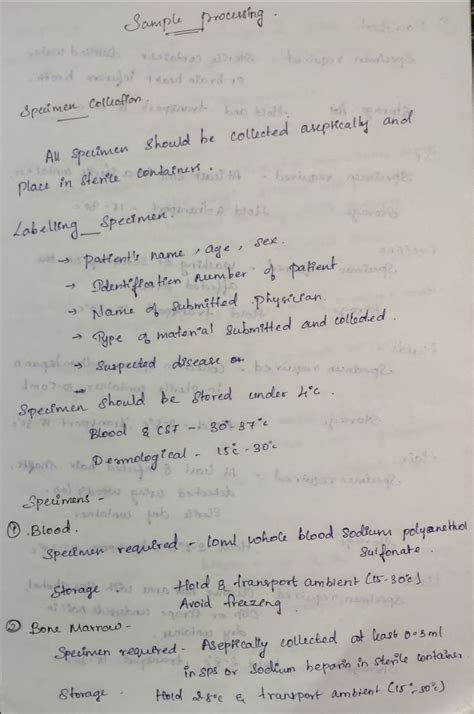 Sample processing.
Specimen Collection.
All specimen should be collected aseptically and
place in sterile containers.
Labelling specimen.
→ patient's name, age, sex.
→ Identification number of patient
→ Name of submitted physician.
→ Type of material submitted and collected.
→ Suspected disease or
Specimen should be stored under 4°c.
Blood & CSF - 30°-37°c
Dermological - 15°c-30°c
Specimens -
① Blood.
Specimen required - 10ml whole blood Sodium polyanethol
Sulfonate.
Storage - Hold & transport ambient (15-30°c)
Avoid freezing.
② Bone Marrow -
Specimen required - Aseptically collected at least 0.3ml
in sps or sodium heparin in sterile container.
Storage - Hold 2-8°c & transport ambient (15°-30°c)